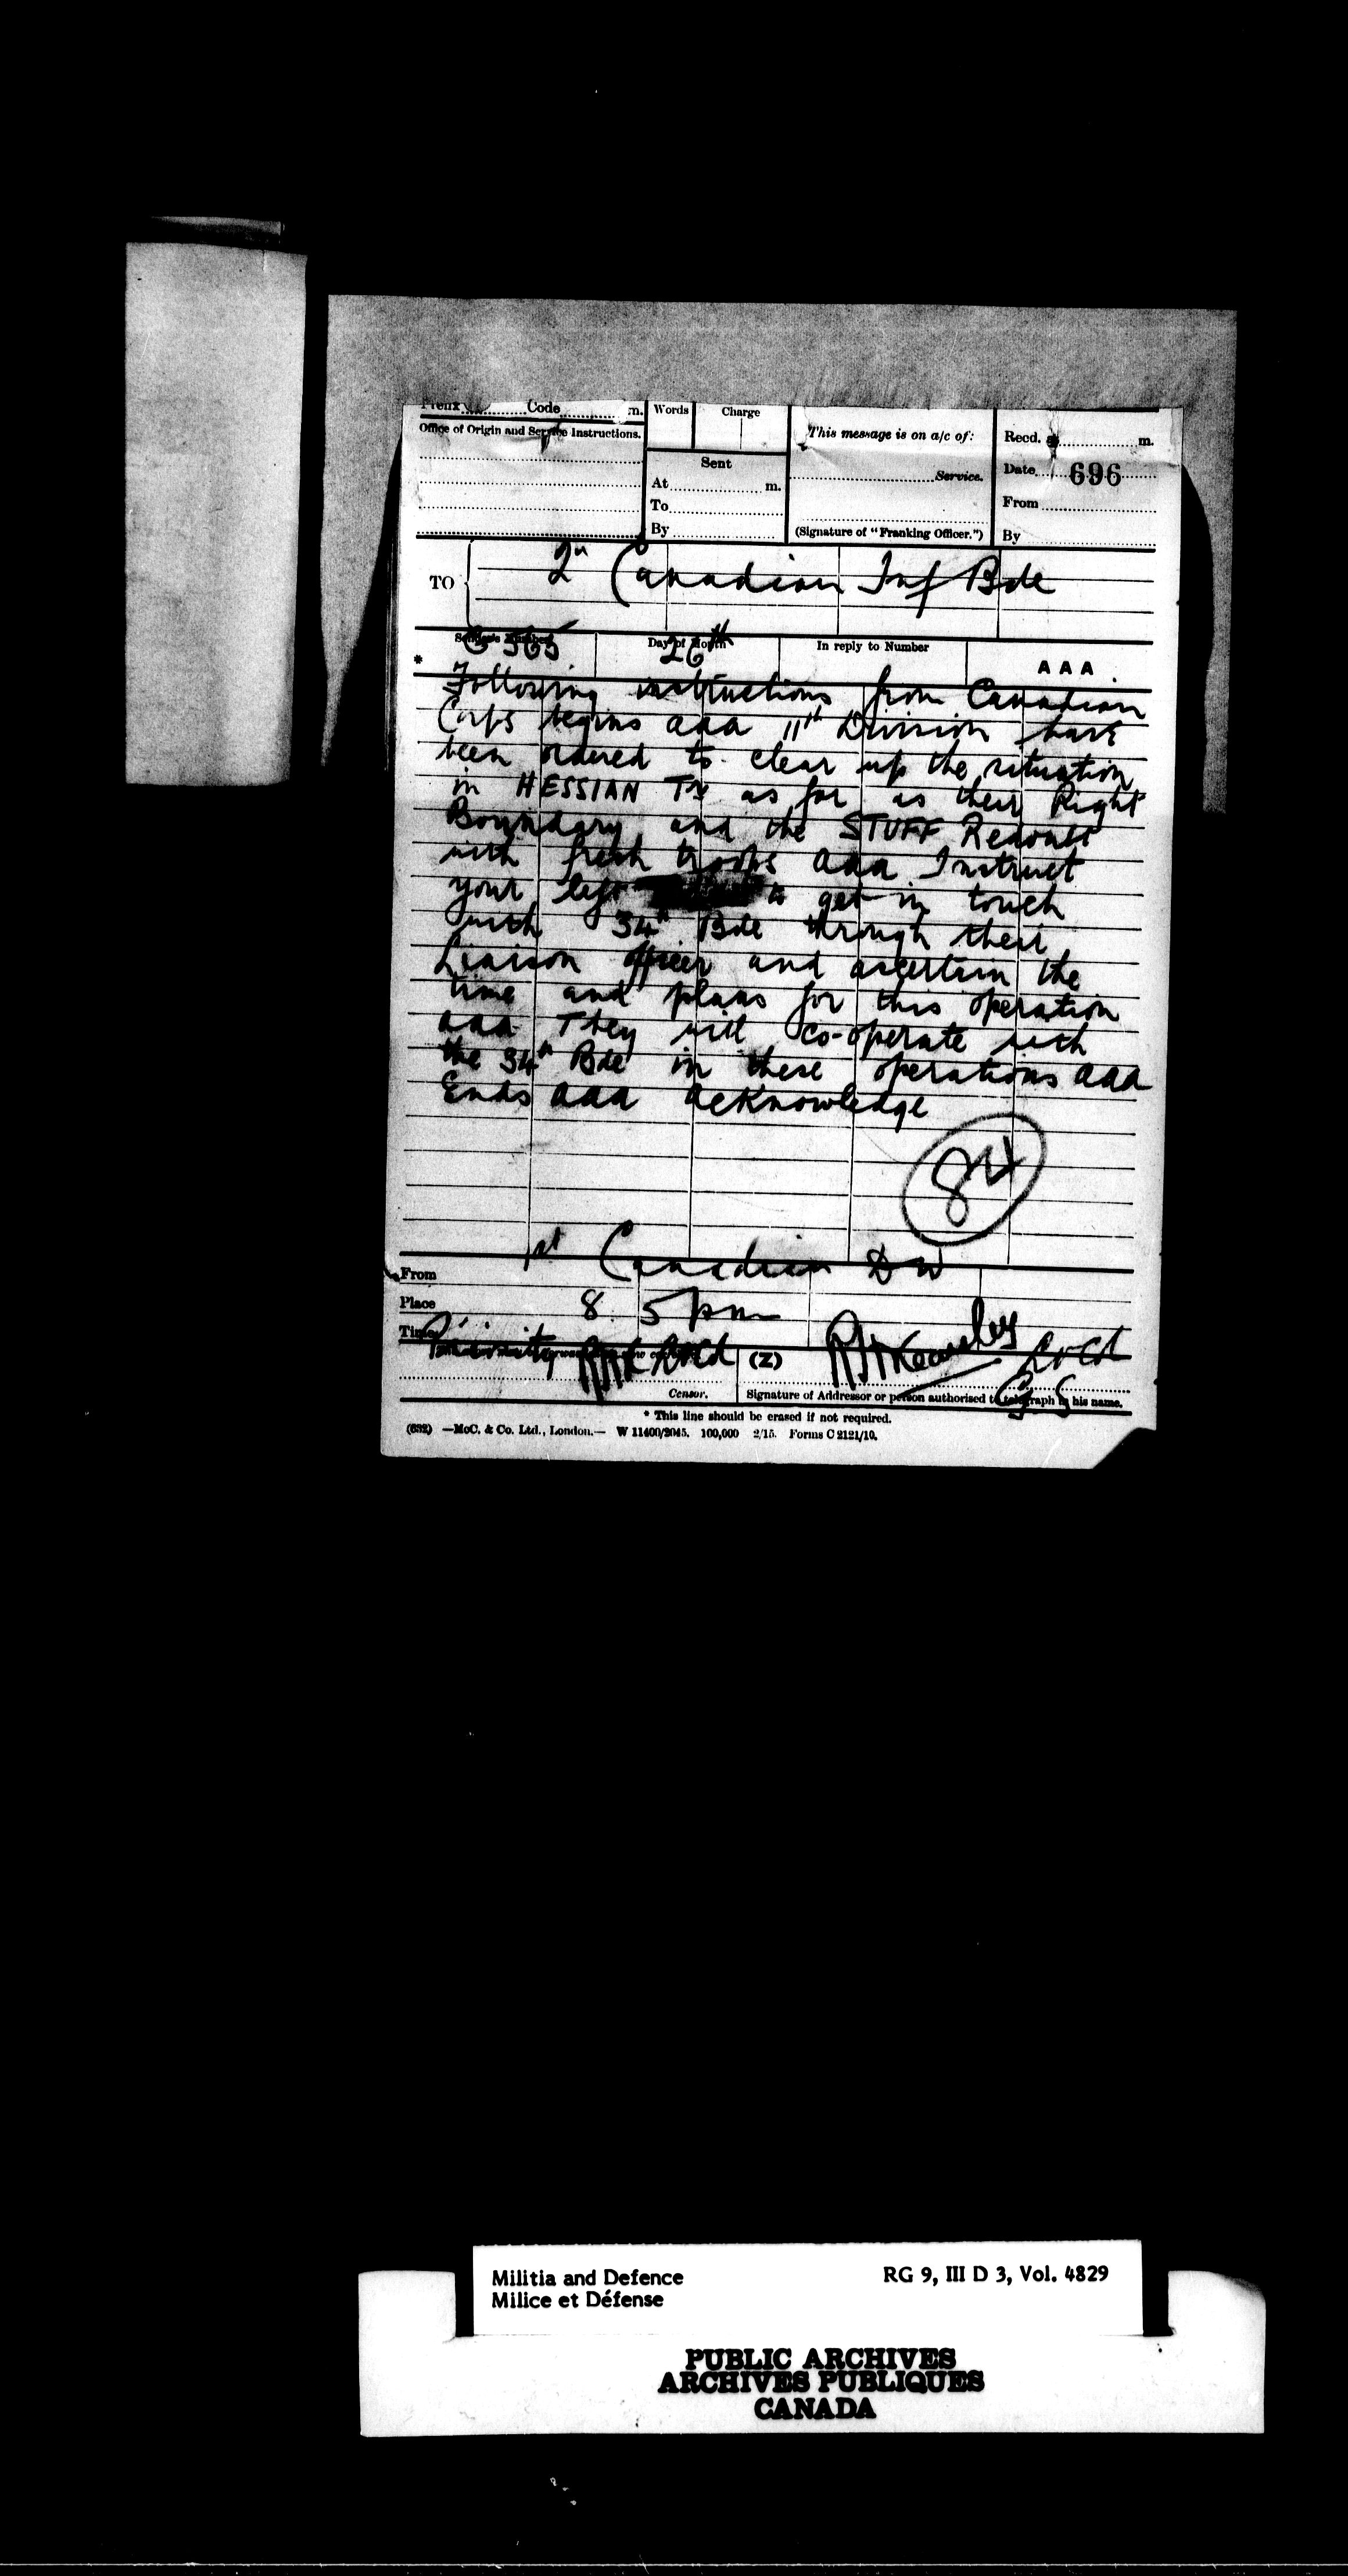 Prefix Code m. Words Charge
Office of Origin and Service Instructions.
This message is on a/c of:
Recd. m.
Sent
Service.
Date 696
At m.
To
From
By
(Signature of "Franking Officer.")
By
TO 2n Canadian Inf Bde
Sender's Number Day of Month In reply to Number AAA
G 565 26th
* Following instructions from Canadian
Corps begins aaa 11th Division have
been ordered to clear up the situation
in HESSIAN Tr as far as their Right
Boundary and the STUFF Redoubt
with fresh troops aaa Instruct
your left to get in touch
with 34th Bde through their
Liaison officer and ascertain the
time and plans for this operation
aaa They will co-operate with
the 34th Bde in these operations aaa
Ends aaa acknowledge
84
From 1st Canadian Div
Place
Time 8. 5 pm
Priority
(Z) RHKearsley Lt Col
GS
Censor.
Signature of Addressor or person authorised to telegraph in his name.
* This line should be erased if not required.
(632) —McC. & Co. Ltd., London.— W 11400/2045. 100,000 2/15. Forms C 2121/10.
Militia and Defence RG 9, III D 3, Vol. 4829
Milice et Défense
PUBLIC ARCHIVES
ARCHIVES PUBLIQUES
CANADA